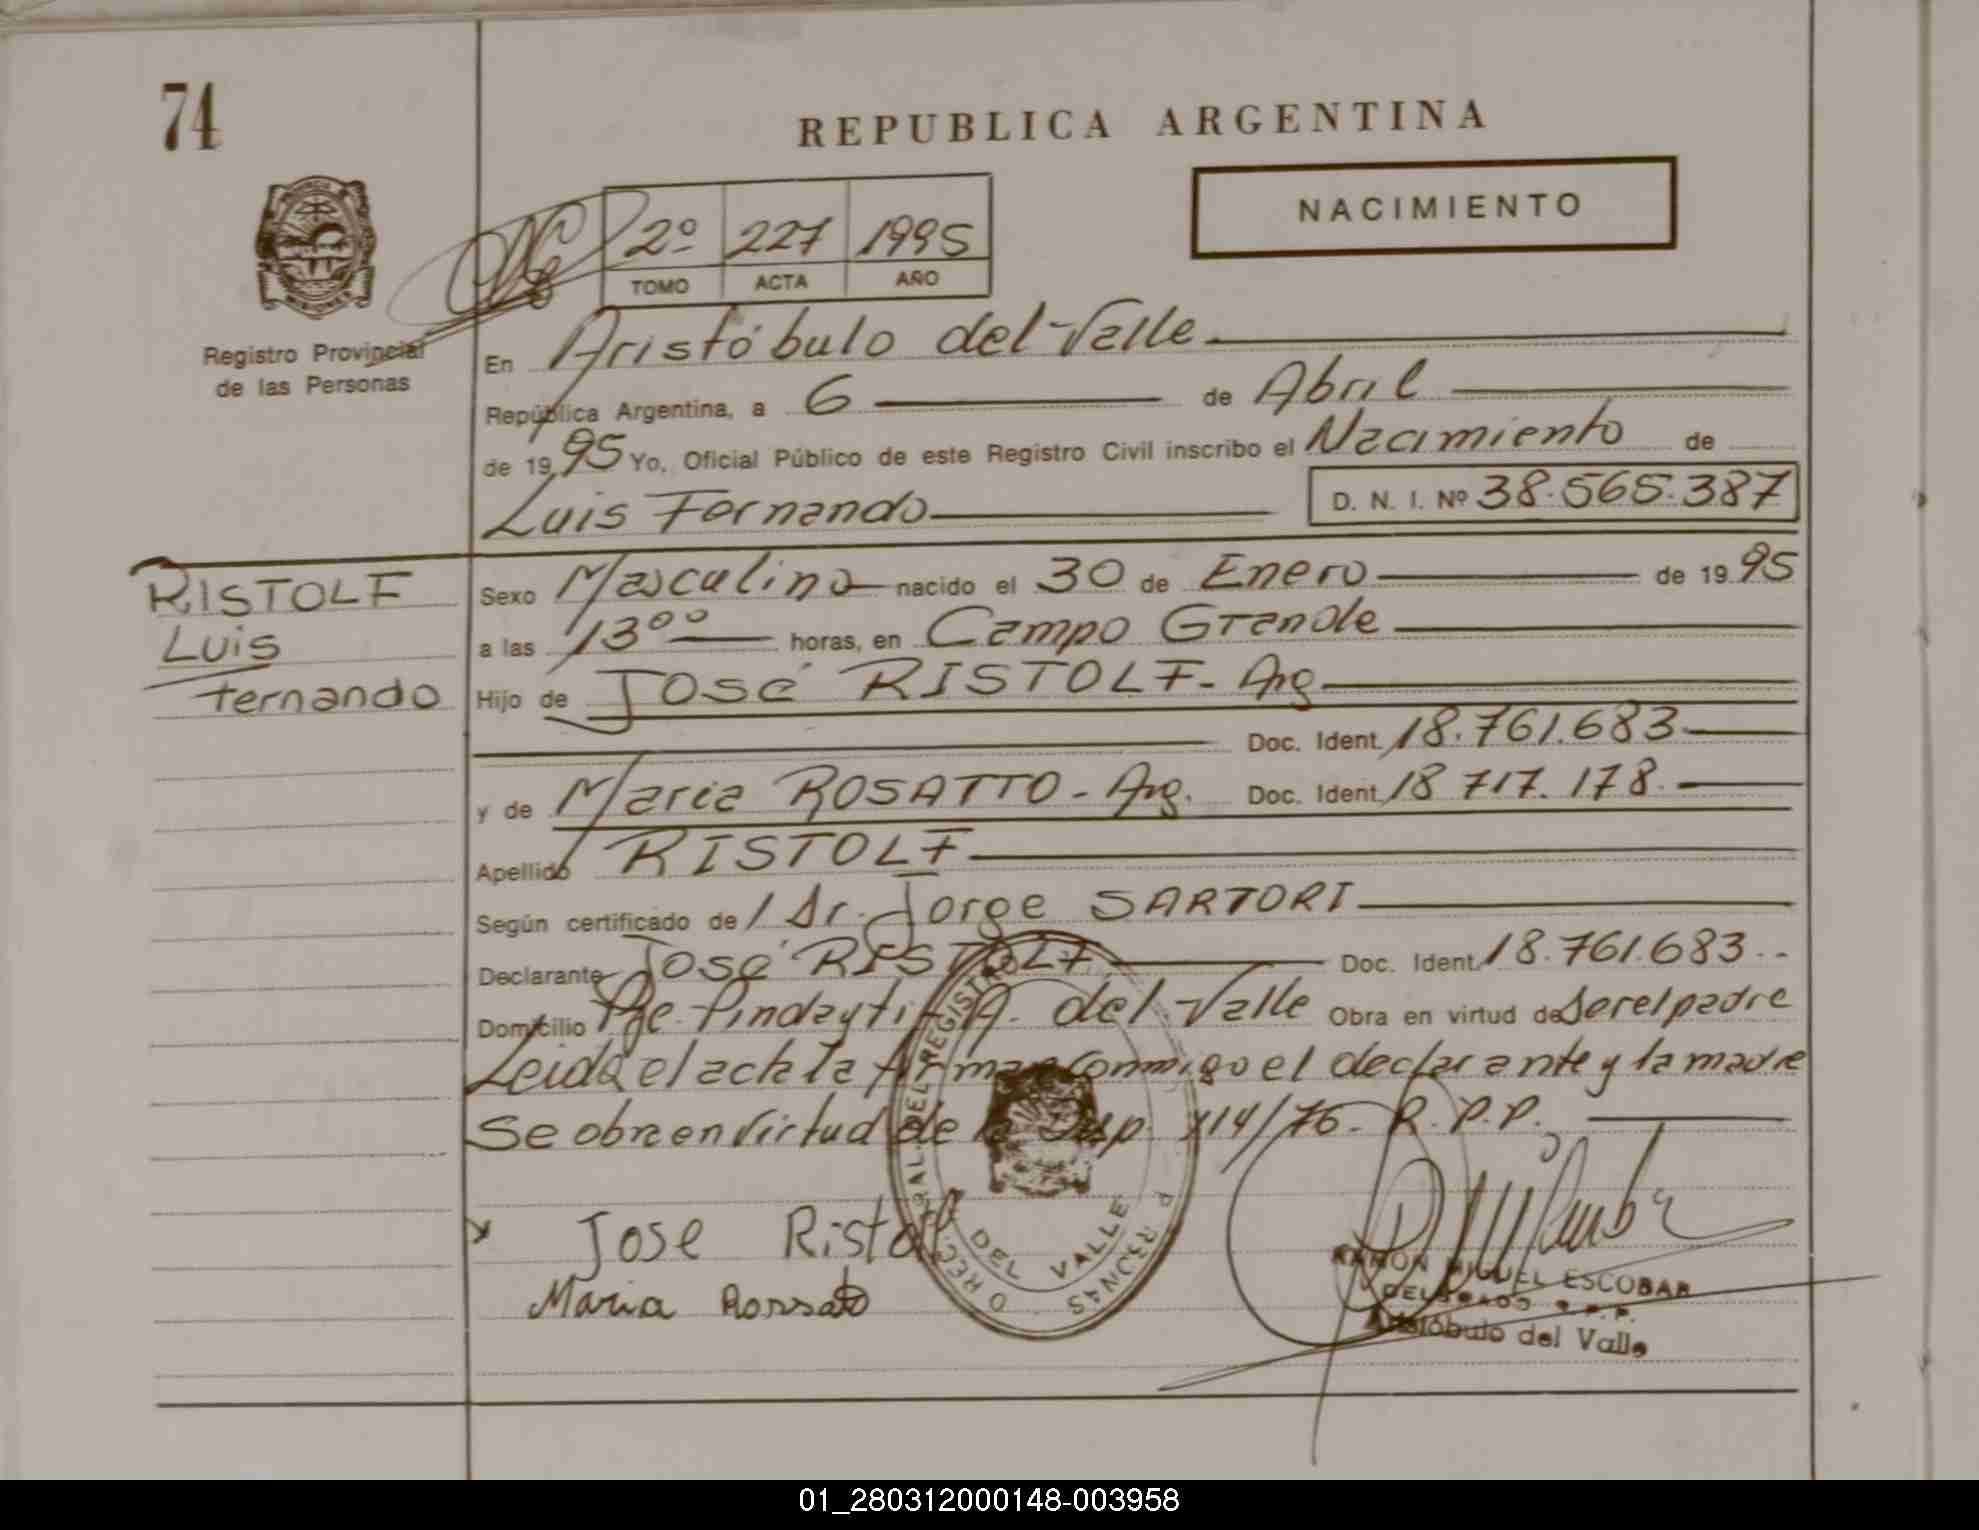 74
REPUBLICA ARGENTINA
NACIMIENTO
2º 227 1995
TOMO ACTA AÑO
Registro Provincial
de las Personas
En Aristóbulo del Valle
República Argentina, a 6 de Abril
de 19 95 Yo, Oficial Público de este Registro Civil inscribo el Nacimiento de
Luis Fernando D. N. I. Nº 38.565.387
RISTOLF
Luis
Fernando
Sexo Masculino nacido el 30 de Enero de 19 95
a las 13ºº horas, en Campo Grande
Hijo de José RISTOLF - Arg
Doc. Ident. 18.761.683
y de María ROSATTO - Arg. Doc. Ident. 18 717.178.
Apellido RISTOLF
Según certificado de / Dr. Jorge SARTORI
Declarante José RISTOLF Doc. Ident. 18.761.683
Domicilio Pje. Pindayti - A. del Valle Obra en virtud de Ser el padre
Leída el acta la firman conmigo el declarante y la madre
Se obra en virtud de la Disp. /76 - R.P.P.
Jose Ristolf
Maria Rossato
DEL VALLE
RAMON MIGUEL ESCOBAR
DELEGADO R.P.P.
Aristóbulo del Valle
01_280312000148-003958